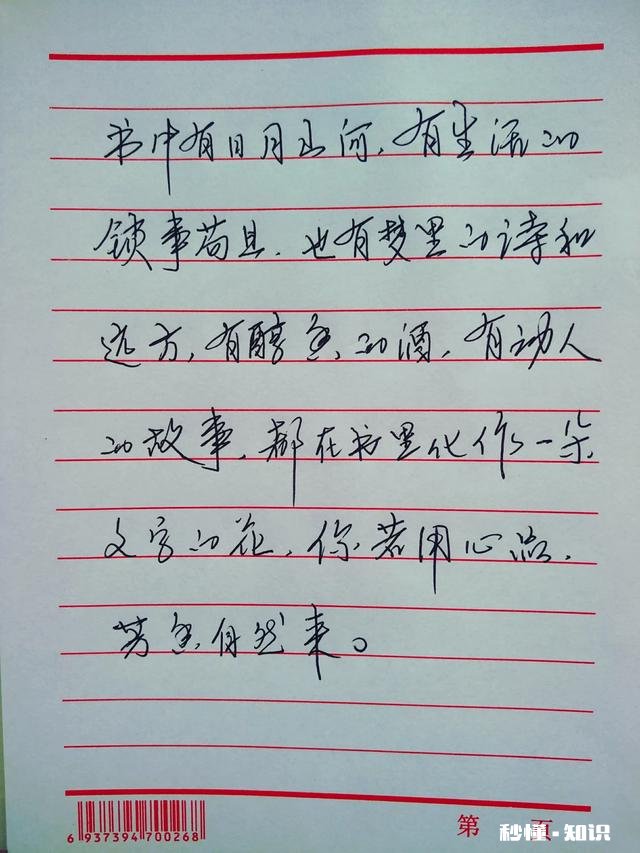 书中有日月山河，有生活的
锁事苟且，也有梦里的诗和
远方，有醇香的酒，有动人
的故事，都在书里化作一朵
文字的花，你若用心品，
芳香自然来。
6 937394 700268
第 页
秒懂·知识